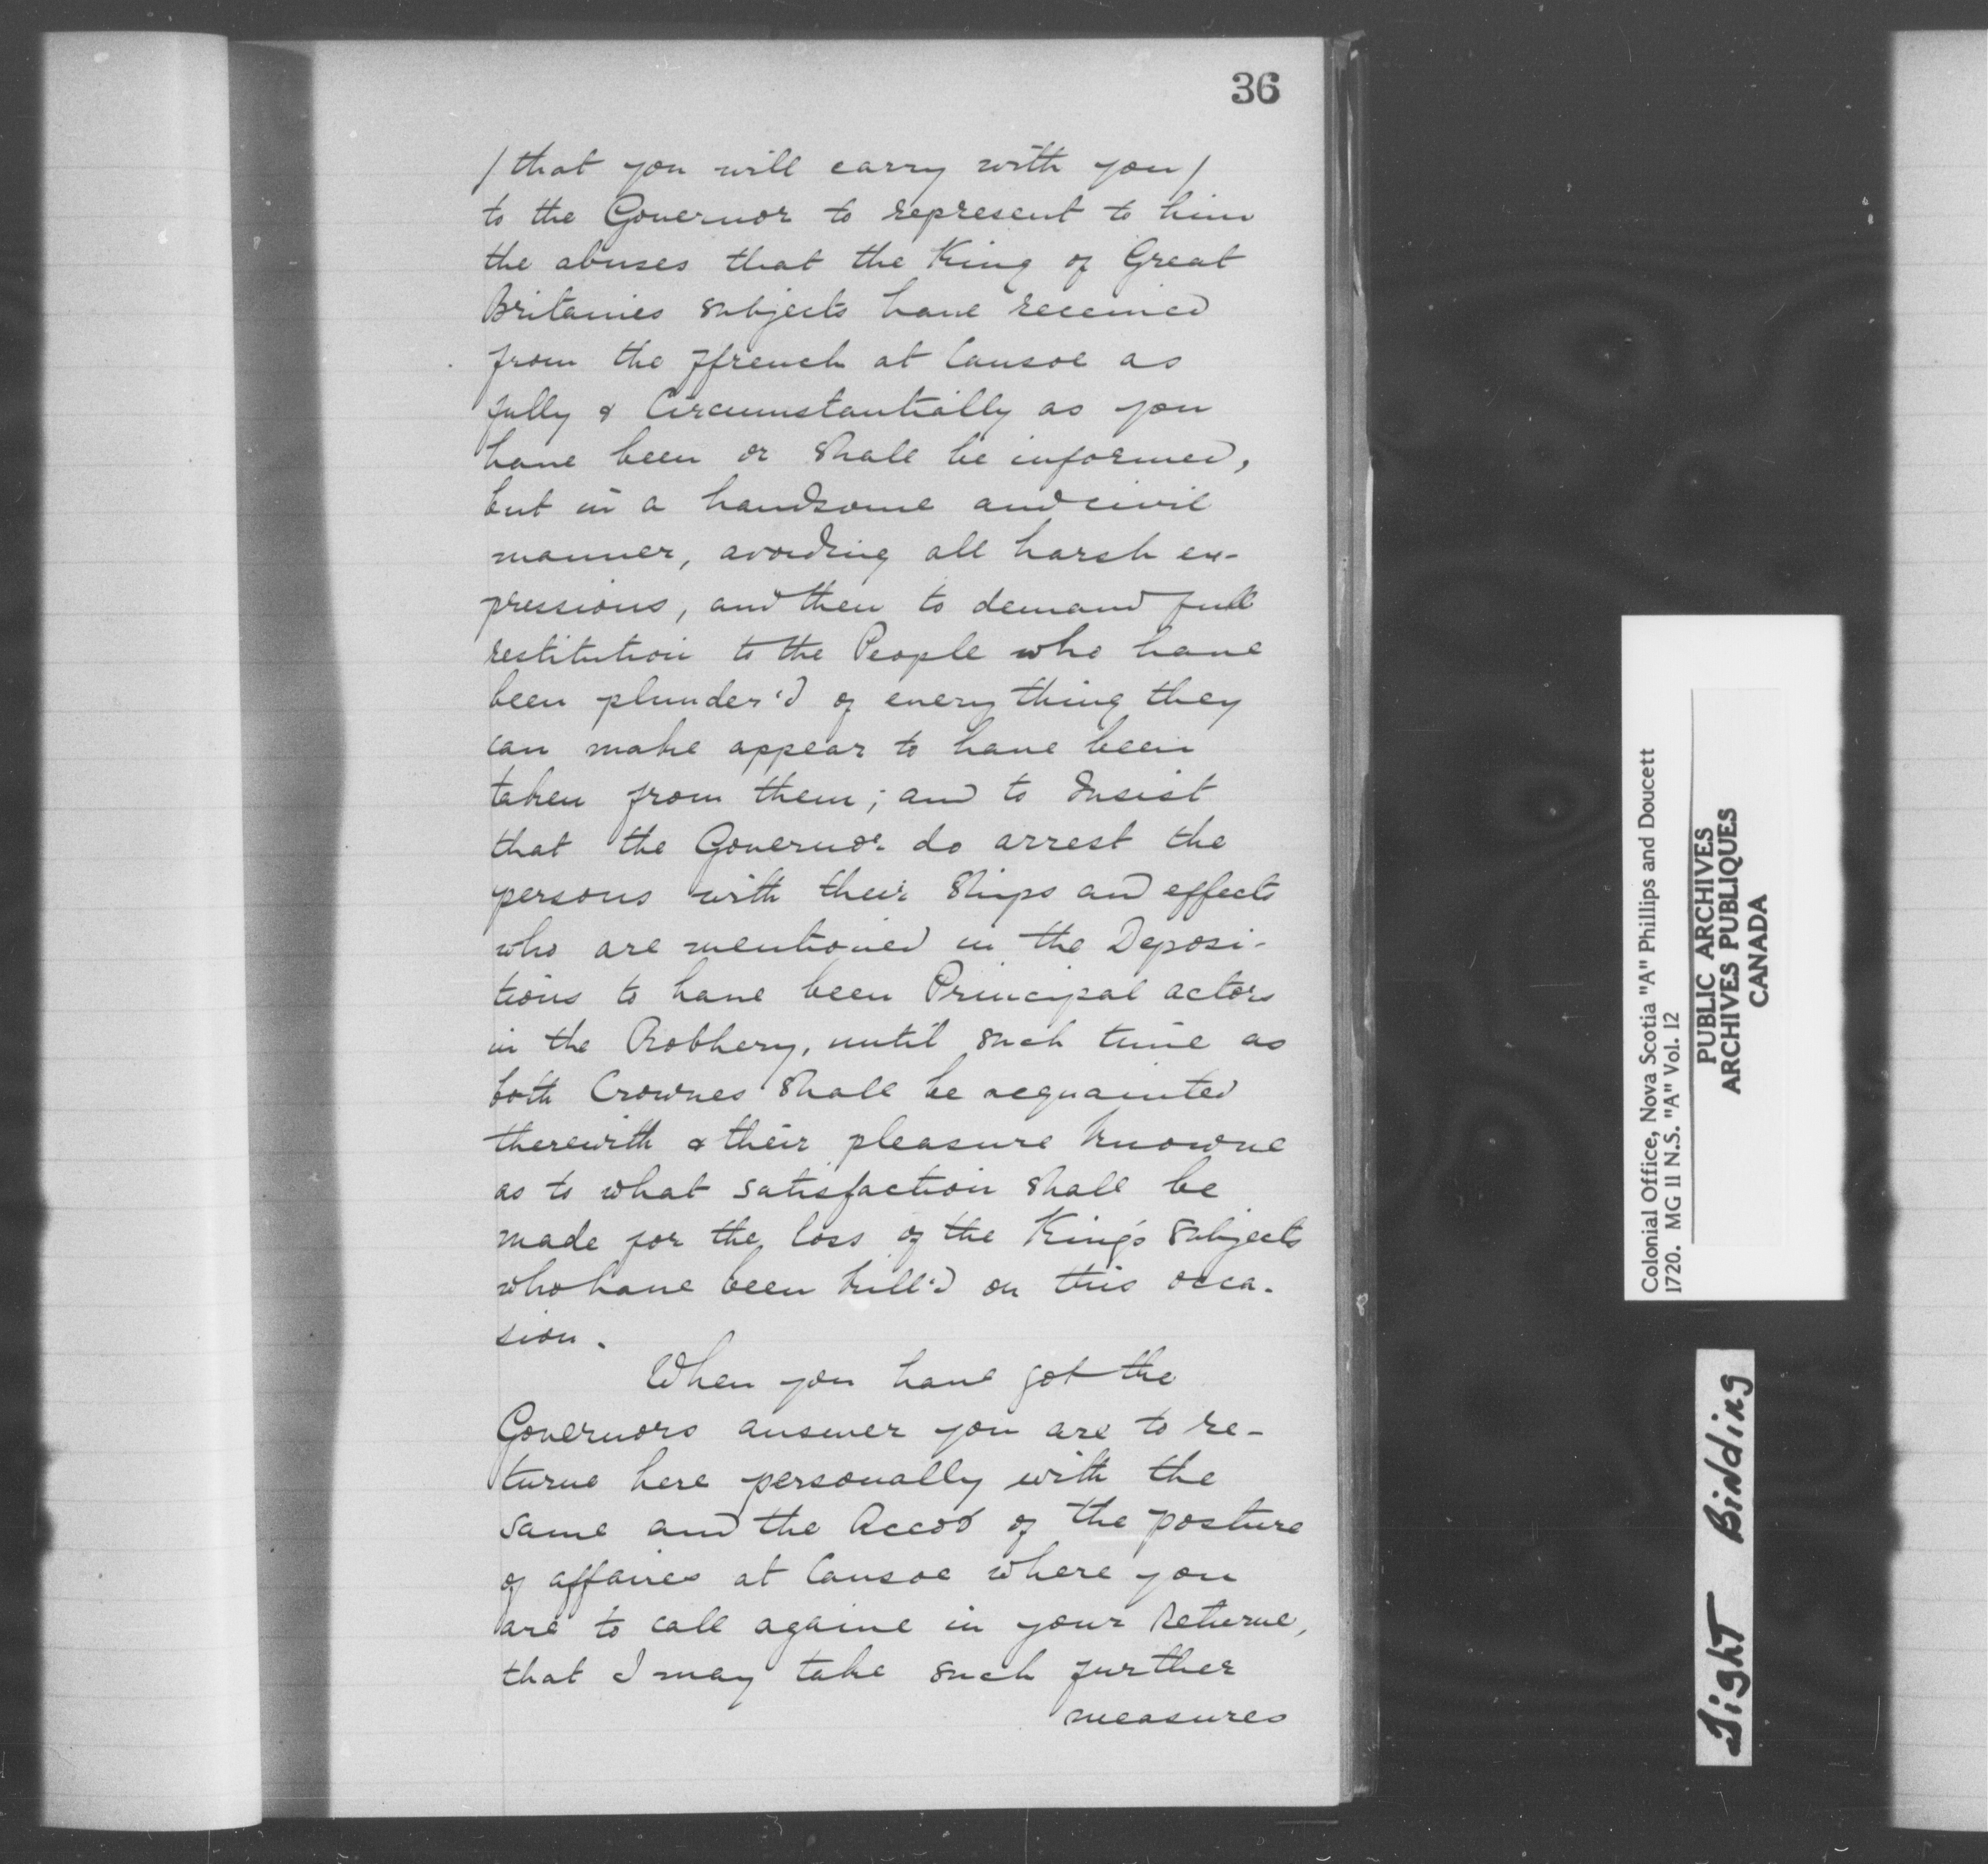 36
/ that you will carry with you /
to the Governor to represent to him
the abuses that the King of Great
Britanies subjects have received
from the ffrench at Cansoe as
fully & Circumstantially as you
have been or shall be informed,
but in a handsome and civil
manner, avoiding all harsh ex-
pressions, and then to demand full
restitution to the People who have
been plunder'd of every thing they
can make appear to have been
taken from them; and to Insist
that the Governor do arrest the
persons with their Ships and effects
who are mentioned in the Deposi-
tions to have been Principal actors
in the Robbery, until such time as
both Crownes shall be acquainted
therewith & their pleasure knowne
as to what satisfaction shall be
made for the loss of the King's subjects
who have been kill'd on this occa-
sion.
When you have got the
Governors answer you are to re-
turne here personally with the
same and the Accot of the posture
of affaires at Cansoe where you
are to call againe in your returne,
that I may take such further
measures
Colonial Office, Nova Scotia "A" Phillips and Doucett
1720. MG 11 N.S. "A" Vol. 12
PUBLIC ARCHIVES
ARCHIVES PUBLIQUES
CANADA
Tight Binding